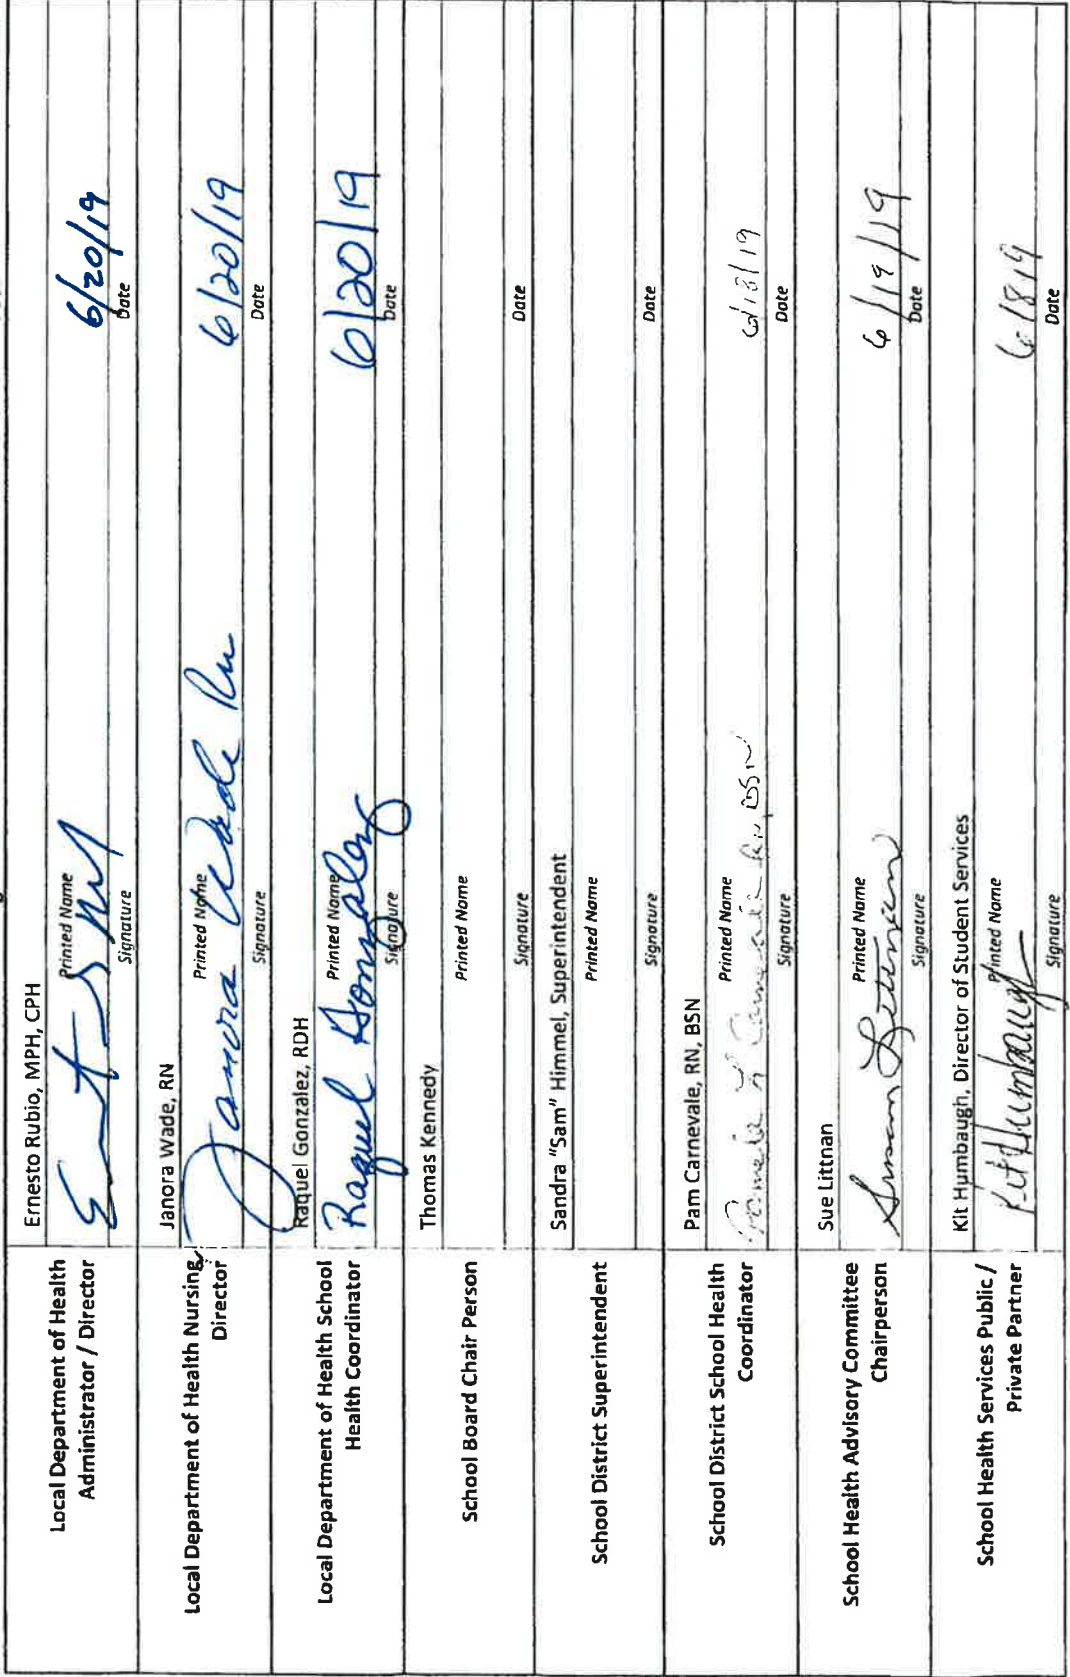 Local Department of Health
Administrator / Director
Ernesto Rubio, MPH, CPH
Printed Name
6/20/19
Signature
Date
Local Department of Health Nursing
Director
Janora Wade, RN
Printed Name
Janora Wade RN
6/20/19
Signature
Date
Local Department of Health School
Health Coordinator
Raquel Gonzalez, RDH
Printed Name
Raquel Gonzalez
6/20/19
Signature
Date
School Board Chair Person
Thomas Kennedy
Printed Name
Signature
Date
School District Superintendent
Sandra "Sam" Himmel, Superintendent
Printed Name
Signature
Date
School District School Health
Coordinator
Pam Carnevale, RN, BSN
Printed Name
Pamela Carnevale RN, BSN
6/18/19
Signature
Date
School Health Advisory Committee
Chairperson
Sue Littnan
Printed Name
Susan Littnan
6/19/19
Signature
Date
School Health Services Public /
Private Partner
Kit Humbaugh, Director of Student Services
Printed Name
Kit Humbaugh
6/18/19
Signature
Date